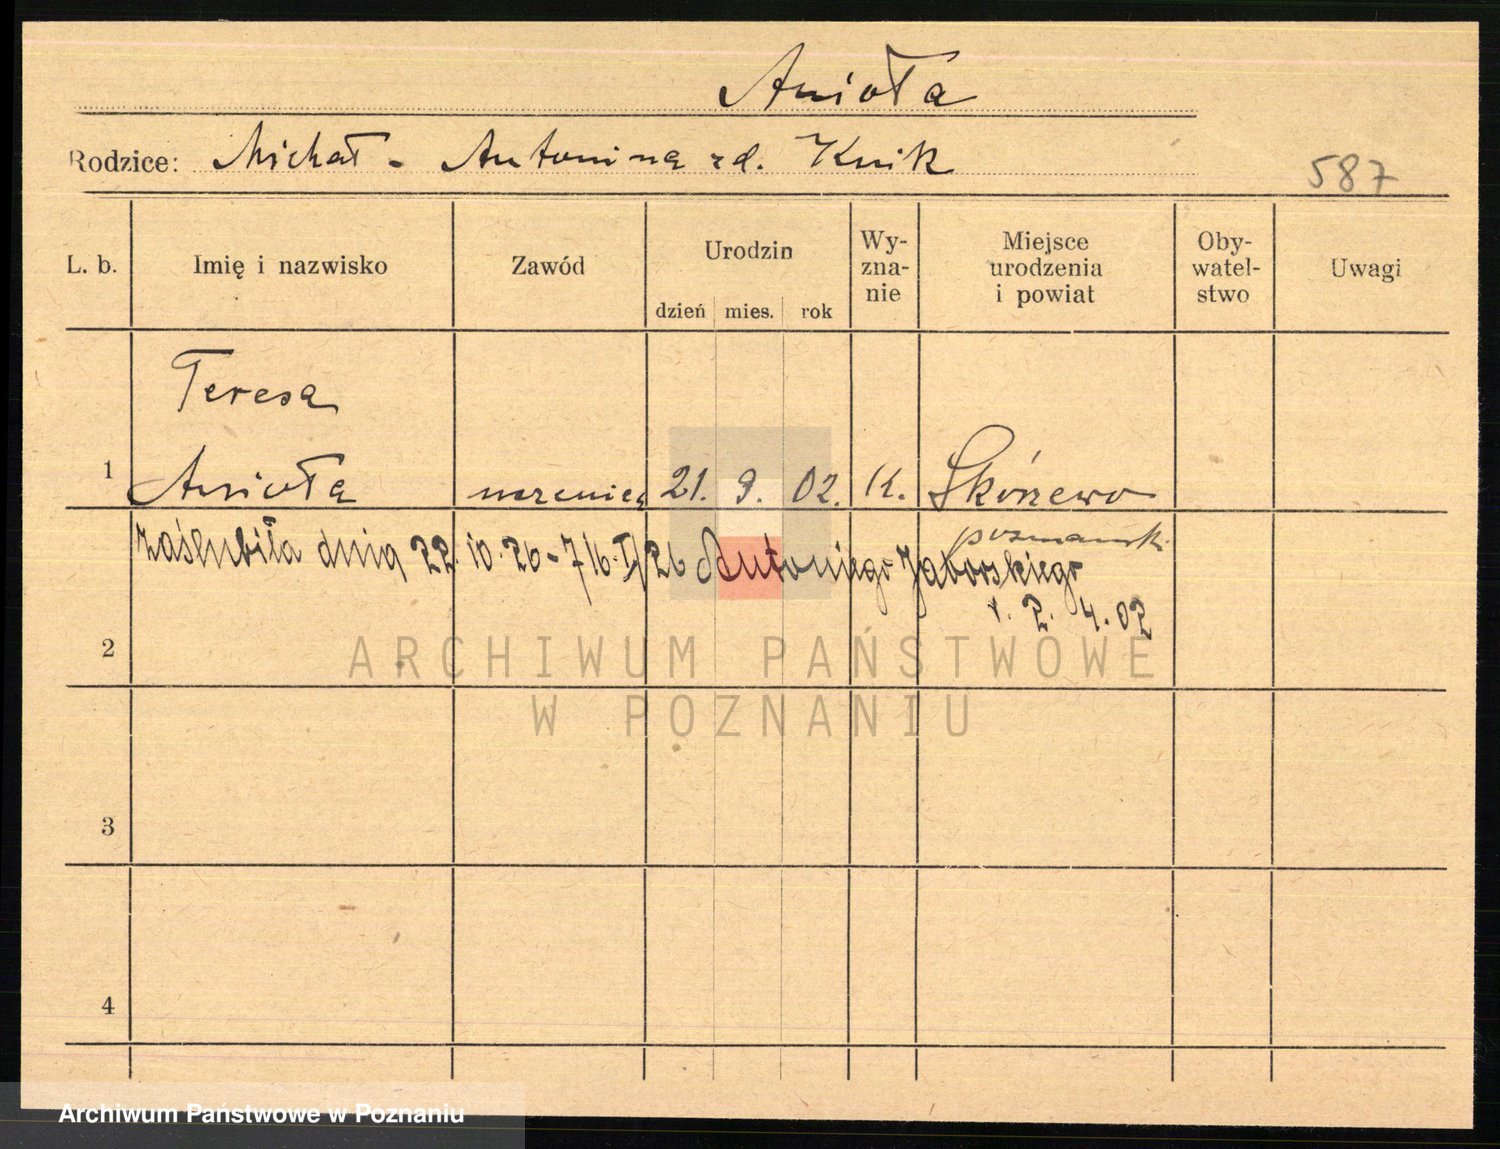 Anioła
Rodzice: Michał - Antonina zd. Knik
587
L. b. Imię i nazwisko Zawód Urodzin dzień mies. rok Wy-zna-nie Miejsce urodzenia i powiat Oby-watel-stwo Uwagi
Teresa
1 Anioła uczenica 21. 9. 02. K. Skórzewo
poznański
zaślubiła dnia 22. 10. 26 - 716. I/26 Antoniego Jaborskiego
r. 2. 4. 02
2
ARCHIWUM PAŃSTWOWE
W POZNANIU
3
4
Archiwum Państwowe w Poznaniu